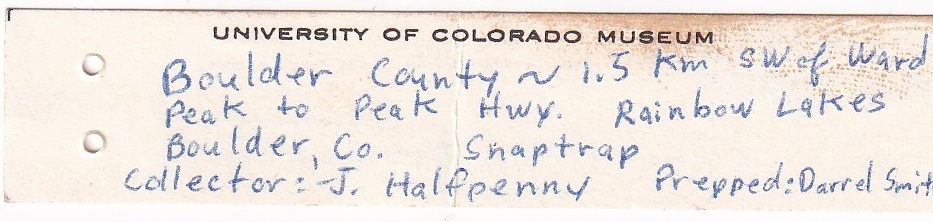 UNIVERSITY OF COLORADO MUSEUM
Boulder County ~ 1.5 Km SW of Ward
Peak to Peak Hwy. Rainbow Lakes
Boulder, Co. Snaptrap
Collector: J. Halfpenny Prepped: Darrel Smit